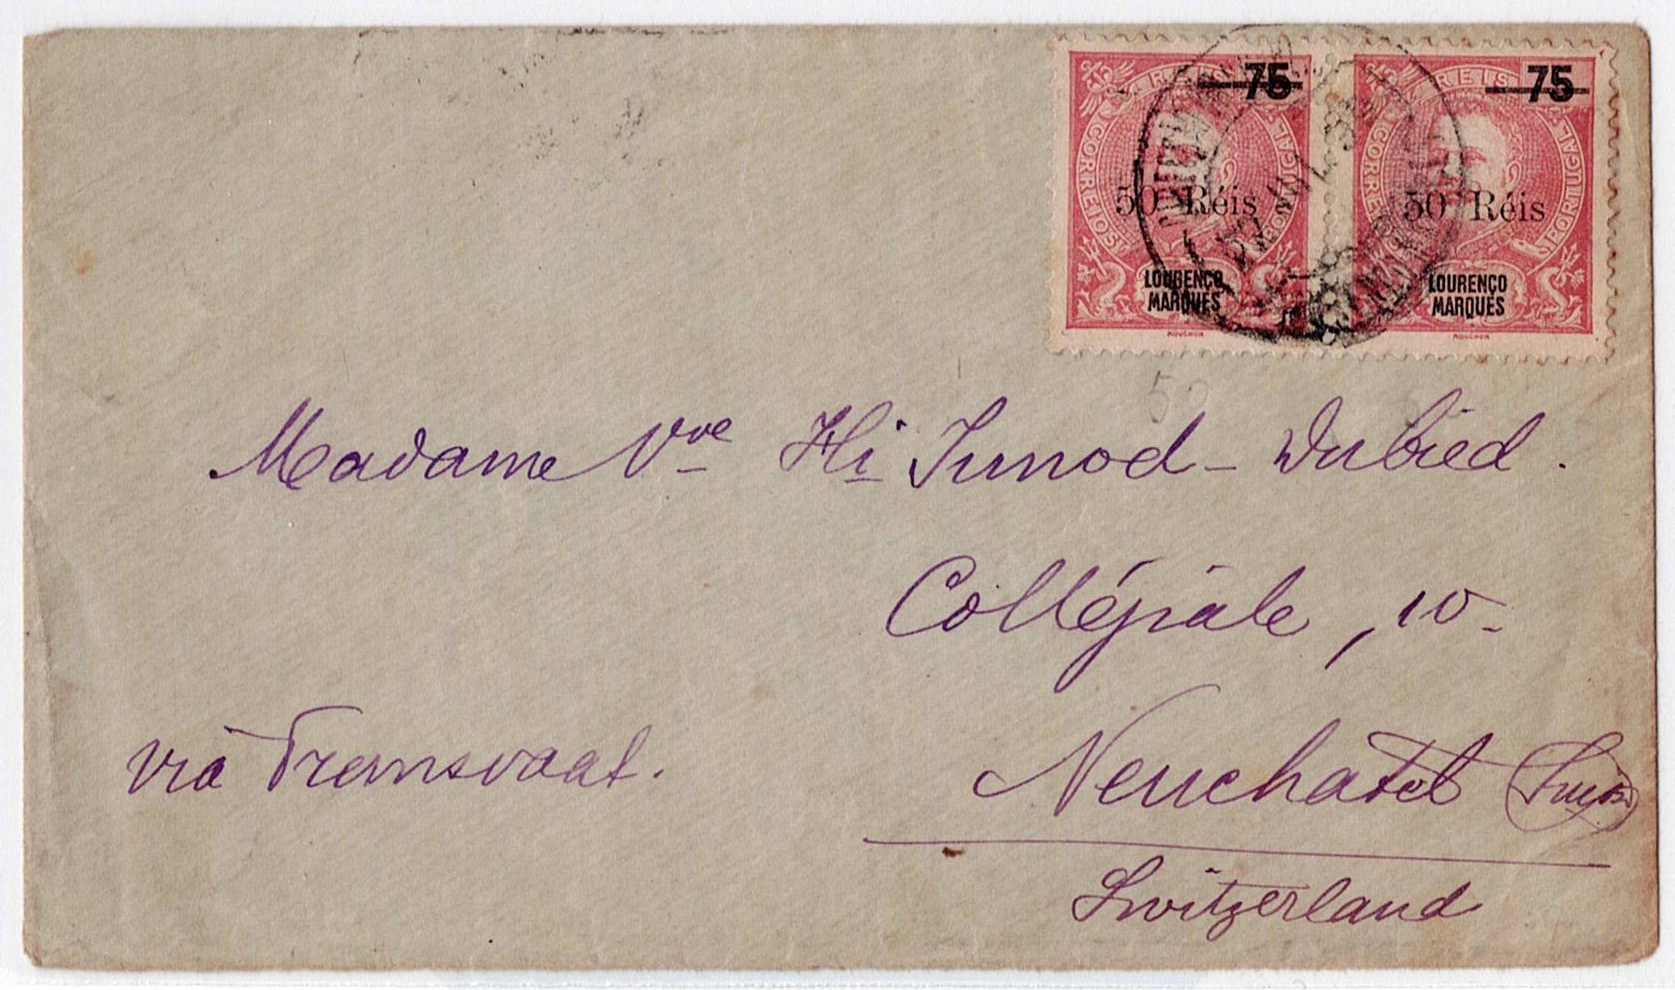 REIS 75
CORREIOS PORTUGAL
50 Réis
LOURENÇO
MARQUES
MOUCHON
REIS 75
CORREIOS PORTUGAL
50 Réis
LOURENÇO
MARQUES
MOUCHON
50
Madame Vve Hi Junod - Dubied.
Collégiale, 10-
via Transvaal.
Neuchatel (Suisse)
Switzerland